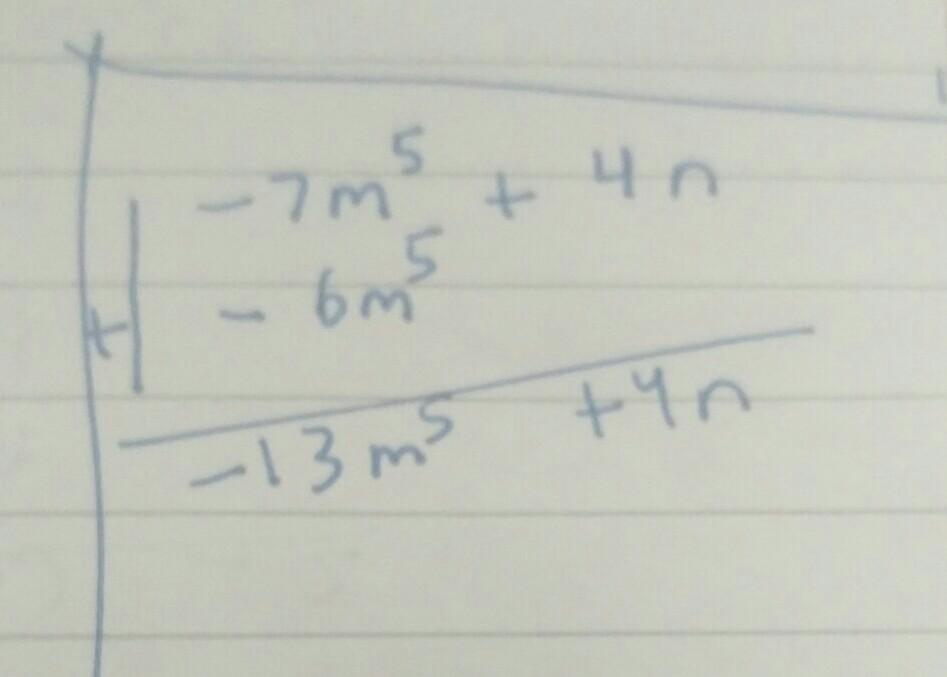 -7m⁵ + 4n
+ - 6m⁵
-13m⁵ +4n